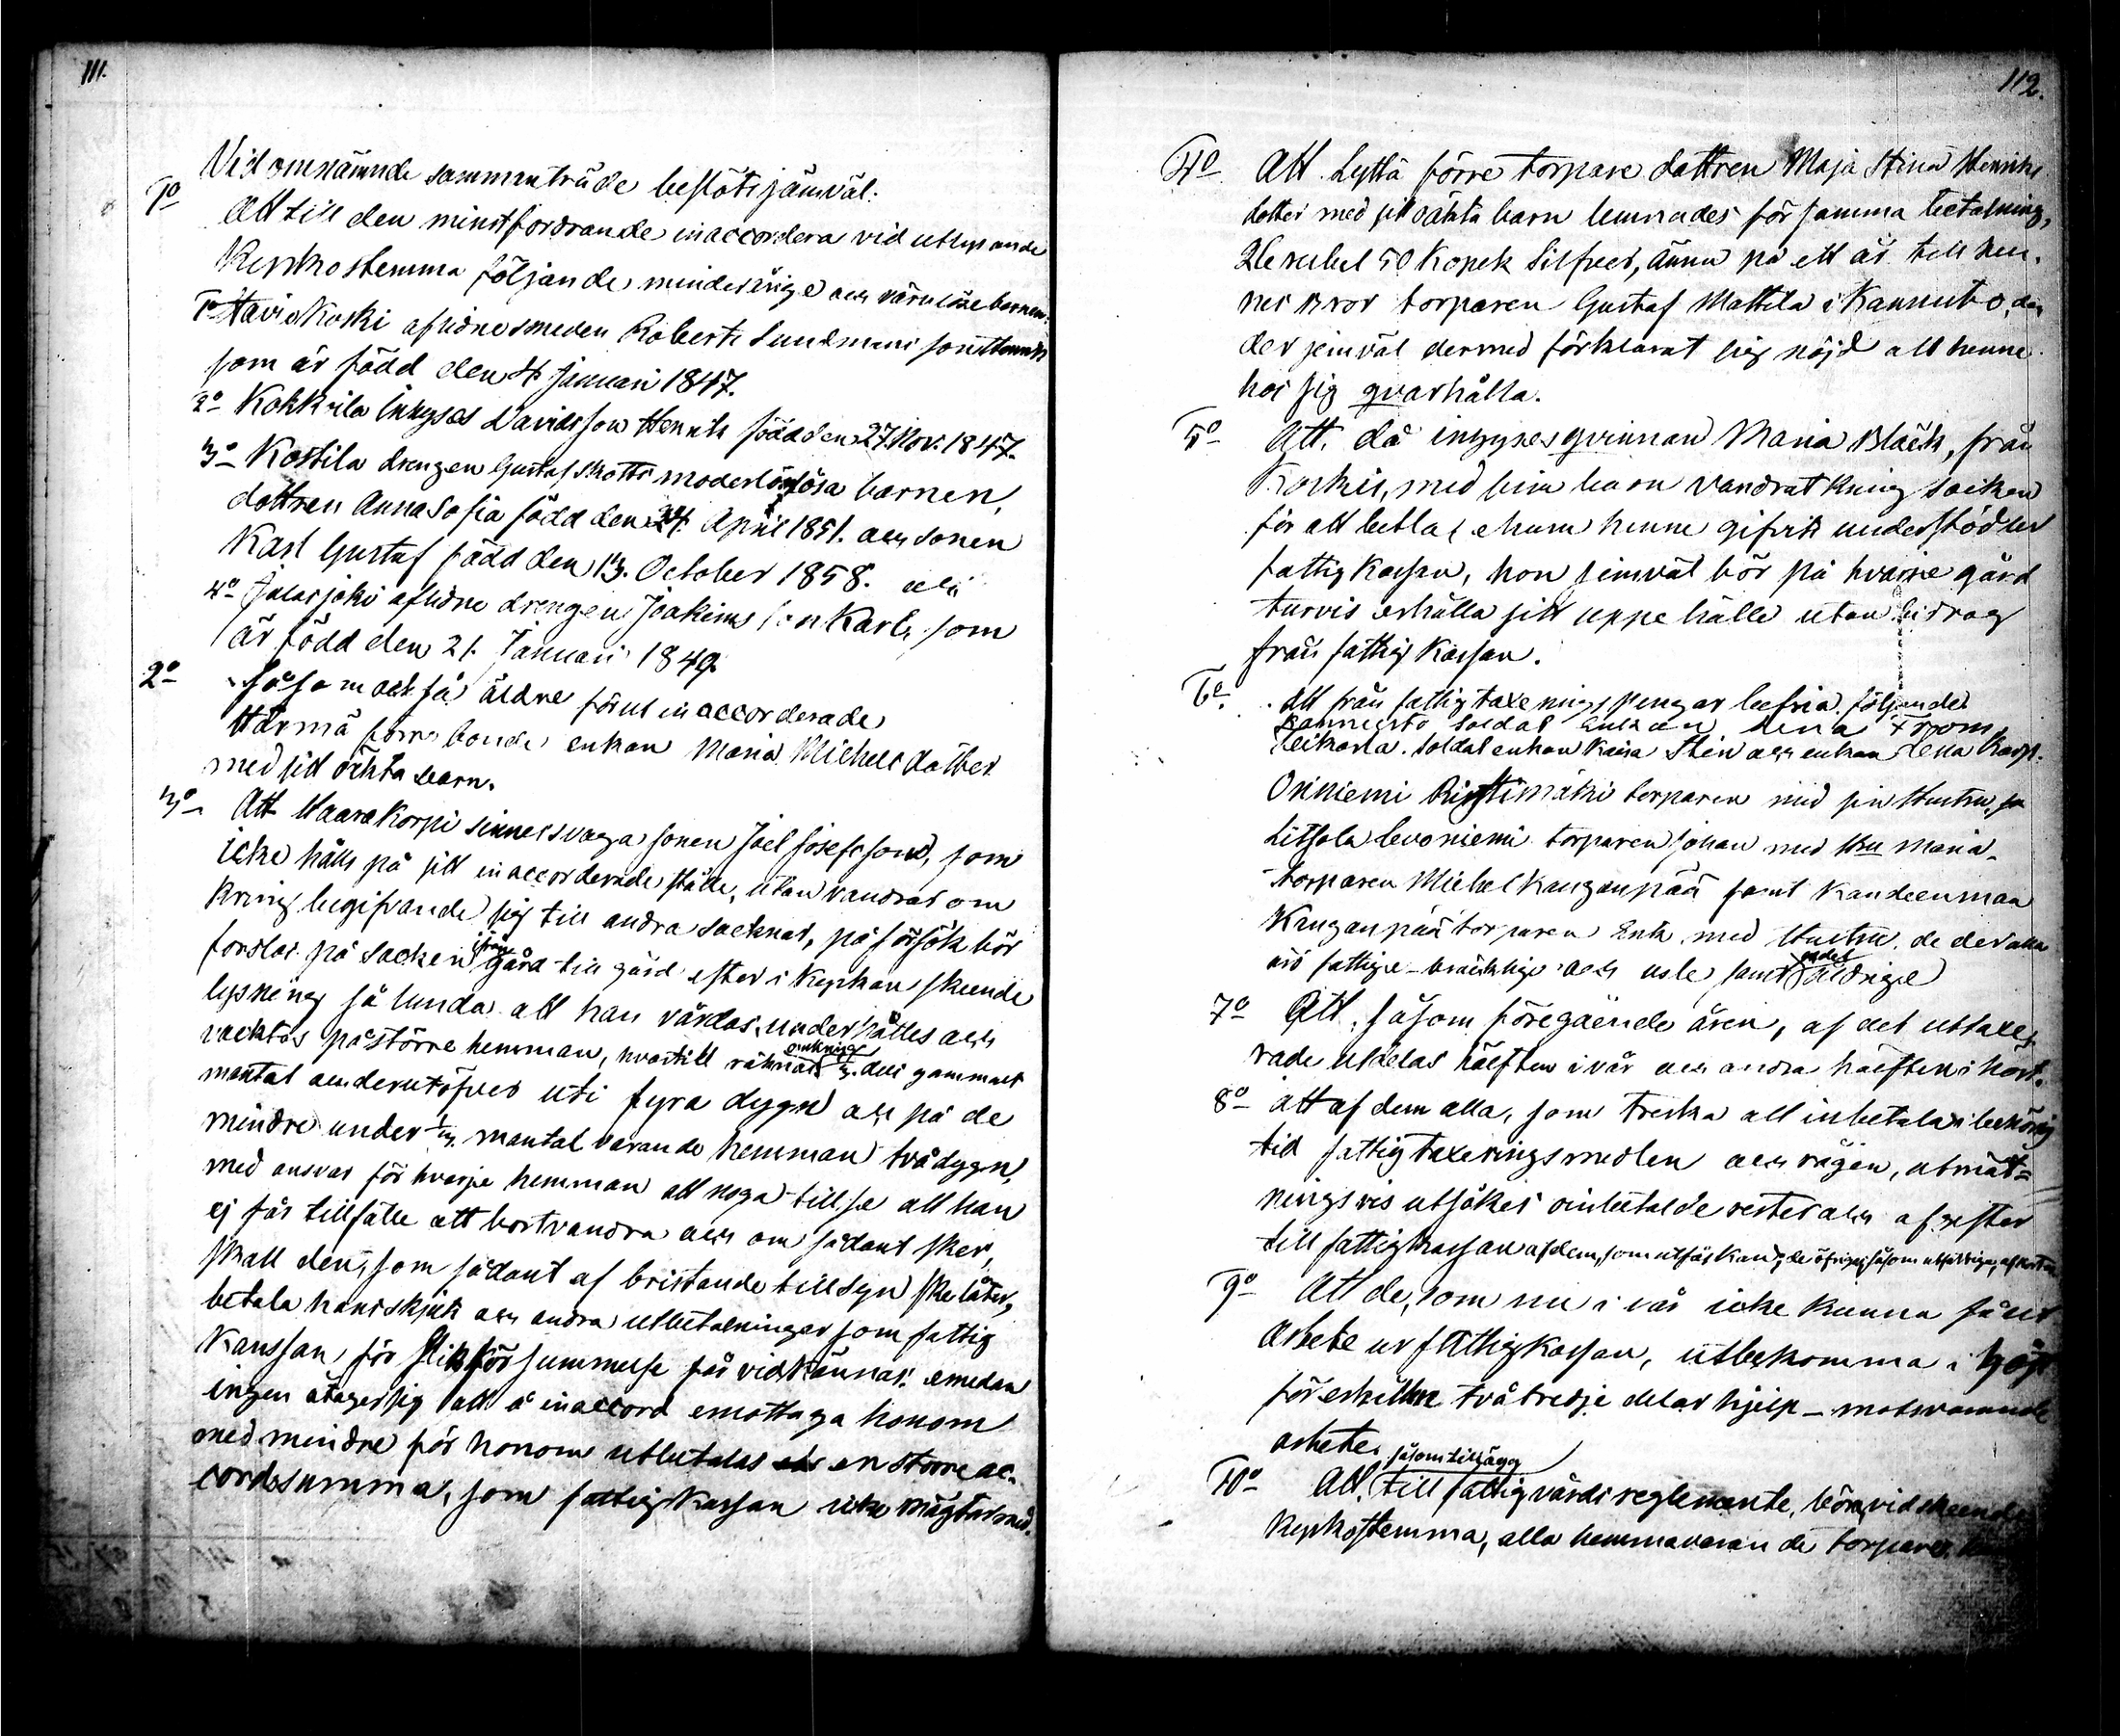 111.
Vid omnämnde sammanträde beslöts jämväl:
1o Att till den minstfordrande inaccordera vid utlysande
Kyrkostemma följande minderårige och värnlöse barnen:
1o Haviokoski aflidne smeden Roberts Sundmans son Henrik
som är född den 4 Januari 1847.
2o Kokkvila Inhyses Davidsson Henrik född den 27. Nov. 1847.
3o Kostila drengen Gustaf Skotts moderlösa barnen,
dottren Anna Sofia född den 24. April 1851. och sonen
Karl Gustaf född den 13. October 1858. och
4o Jalasjoki aflidne drengen Joakims son Karl, som
är född den 21. Januari 1849.
2o Såsom också äldre förut inaccorderade
Härmä förra bonde enkan Maria Michels dotter
med sitt oächta barn.
3o Att Haarakorpi sinnessvaga sonen Joel Josefsson, som
icke hålls på sitt inaccorderade ställe, utan vandrat om
kring begifvande sig till andra socknar, på försök bör
forslas på socken ifrån gård till gård efter i Kyrkan skeende
lysning så lunda att han vårdas, underhålles och
vaktas på större hemman, hvartill räknas omkring 1/3 dels gammalt
mantal och derutöfver uti fyra dygn och på de
mindre under 1/3 mantal varande hemman två dygn,
med ansvar för hvarje hemman att noga tillse att han
ej får tillfälle att bortvandra och om sådant sker,
skall den, som sådant af bristande tillsyn ske låter,
betala hans skjuts och andra utbetalningar som fattig
Kassan för slik försummelse får vidkännas: emedan
ingen åtager sig att å inaccord emottaga honom
med mindre för honom utbetalas en större ac-
cordssumma, som fattig Kassan icke mägtar med.
112.
4o Att Lyttä förre torpare dottren Maja Stina Henriks
dotter med sitt oäkta barn lemnades för samma betalning,
2 rubel 50 Kopek Silfver, ännu på ett år till hen-
nes bror torparen Gustaf Mattila i Kannisto,
der jemväl dermed förklarat sig nöjd att henne
hos sig qvarhålla.
5o Att, då inhyses qvinnan Maria Bläck, från
Koskis, med sina barn vandrat kring socken
för att betla ehuru henne gifvits understöd ur
fattig Kassan, hon jemväl bör på hvarje gård
turvis erhålla sitt uppehälle utan bidrag
från fattig Kassan.
6o Att från fattigtaxerings pengar befria följande
Kannisto soldat Enkan Lena From
Leikola. soldatenkan Kaisa Stein och enkan Lena Karp.
Oriniemi Ristimäki torparen med sin Hustru,
Litsola Levoniemi torparen Johan med Hu Maria
torparen Michel Kanganpää samt
Kanganpää torparen Erik med Hustru, de der alla
äro fattige bräcklige och usle samt endel åldrige
7o Att, såsom föregående åren, af det uttaxe-
rade utdelas hälften i vår och andra hälften i höst.
8o att af dem alla, som treska att inbetala i behörig
tid fattigtaxeringsmedlen och rågen, utmät-
ningsvis utsökes oinbetalde rester och af rester
till fattigkassan af dem, som utsökas kan, de öfrige såsom utfattige, afkortas
9o Att de, som nu i vår icke kunna få ut
arbete ur fattigkassan, utbekomma i höst
för erhållne två tredje delar hjelp motsvarande
arbete.
10o Att, såsom tillägg till fattigvårds reglemente, böra vid skeende
Kyrkostemma, alla hemmavarande torpare,